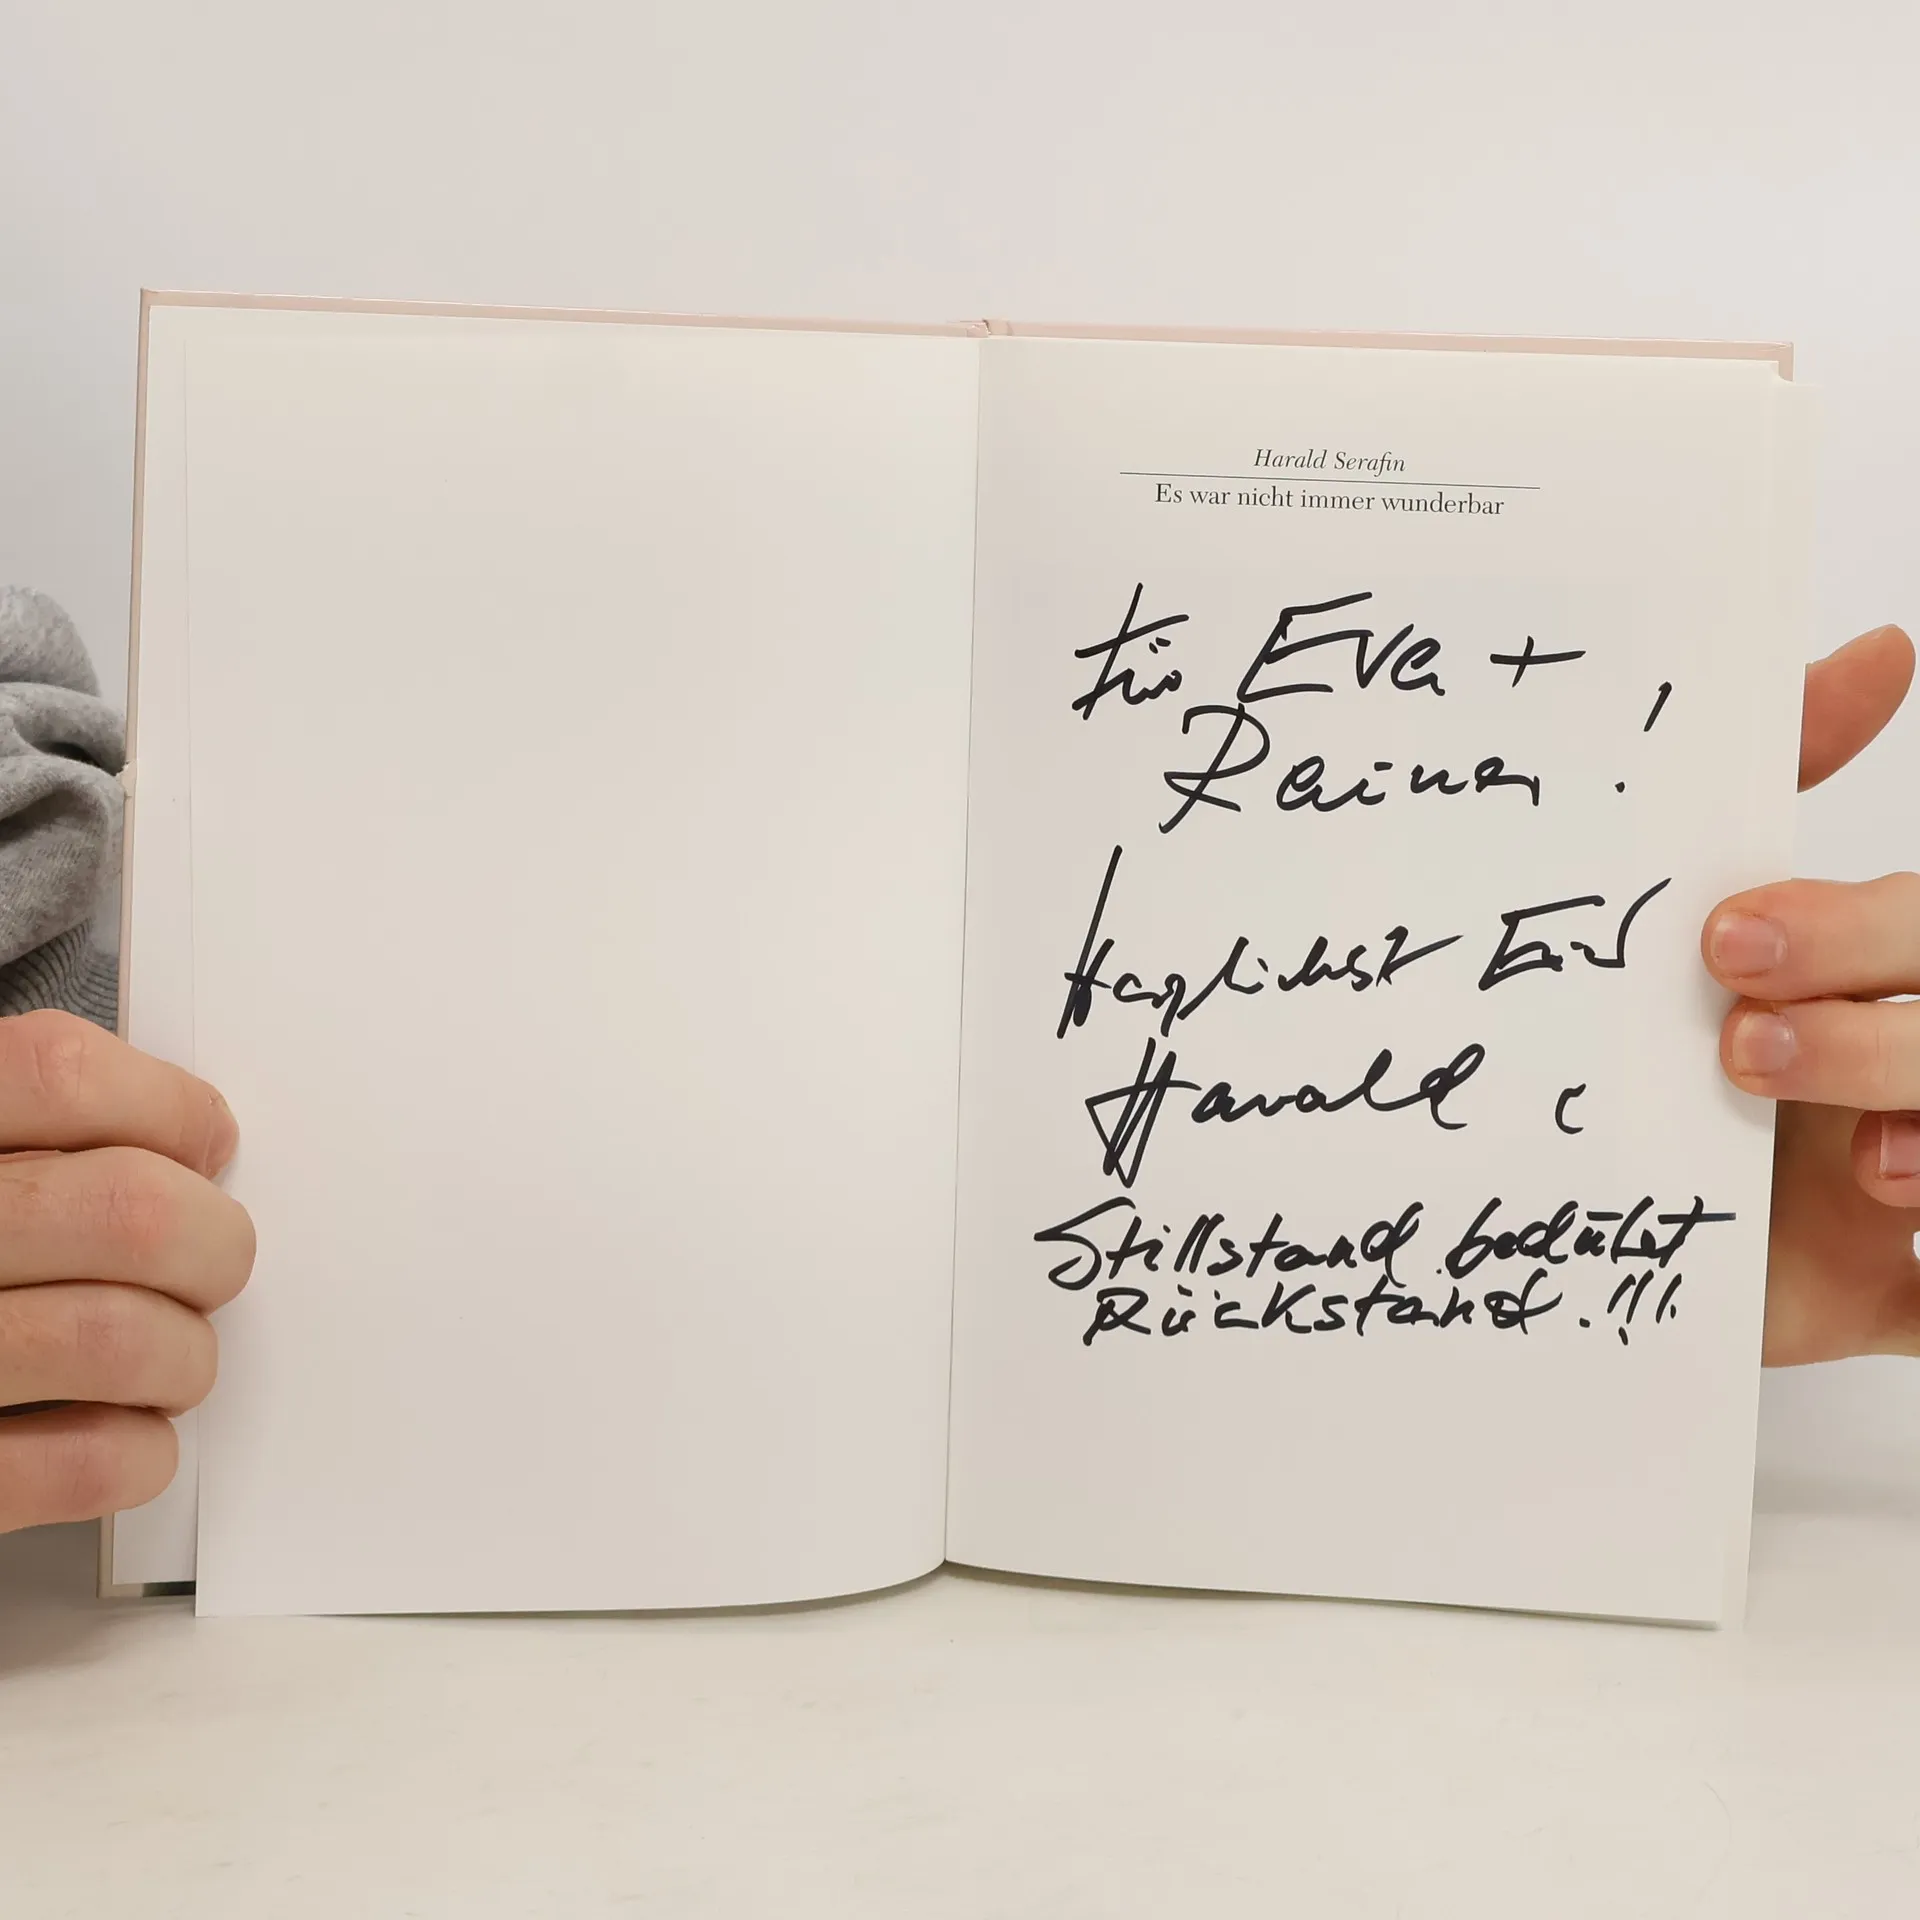 Harald Serafin
Es war nicht immer wunderbar
Für Eva +
Rainer!
Herzlichst Euer
Harald
Stillstand bedeutet
Rückstand.!!!